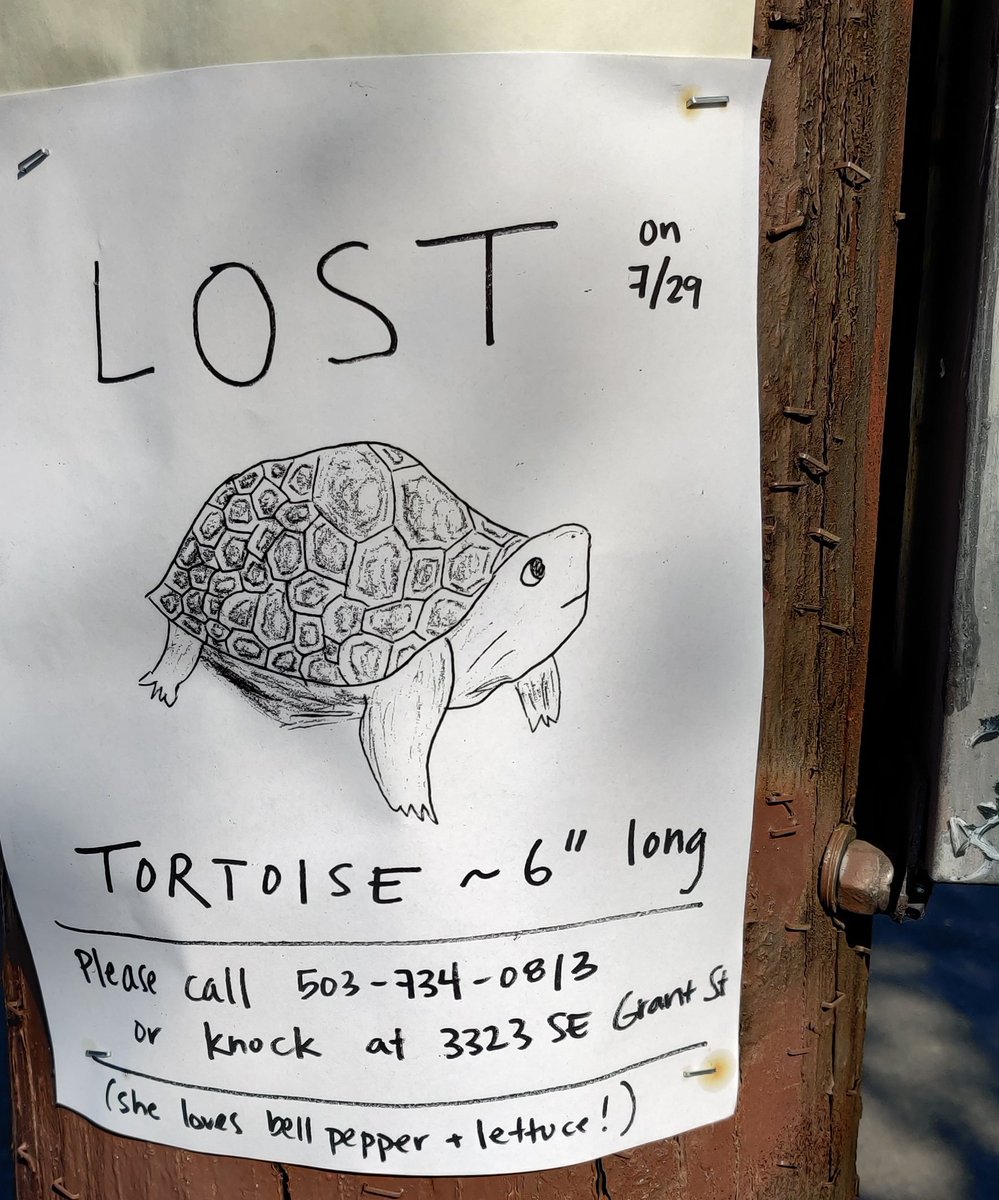 LOST
on
7/29
TORTOISE ~ 6" long
Please call 503-734-0813
or knock at 3323 SE Grant St
(she loves bell pepper + lettuce!)